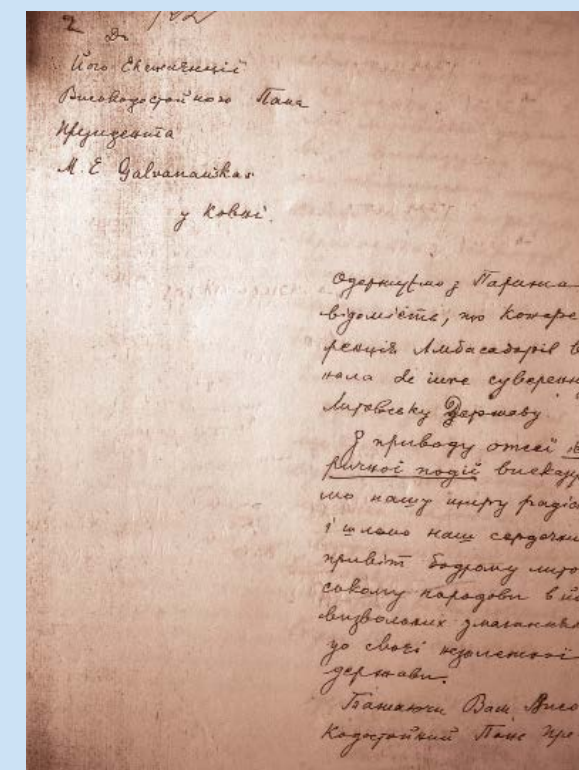 2
До
Його Ексцеленції
Високодостойного Пана
Президента
М. Е Galvanauskas
у Ковні.
Одержуємо з Парижа
відомість, що Конфе
ренція Амбасадорів в
нала de iure суверенн
Литовську Державу
З приводу отсеї
ричної події вискажу
мо нашу щиру радіс
і шлемо наш сердечни
привіт бодрому лито
ському народови в й
визвольних змаганнях
до своєї незалежної
держави.
Бажаючи Вам Висо
кодостойний Пане Пре